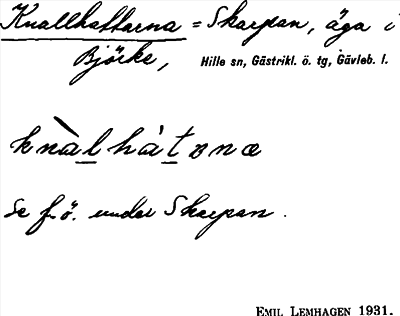 Knallhattarna = Skarpan, äga i
Björke, Hille sn, Gästrikl. ö. tg, Gävleb. l.
knàlhàtɒnæ
Se f. ö. under Skarpan.
EMIL LEMHAGEN 1931.